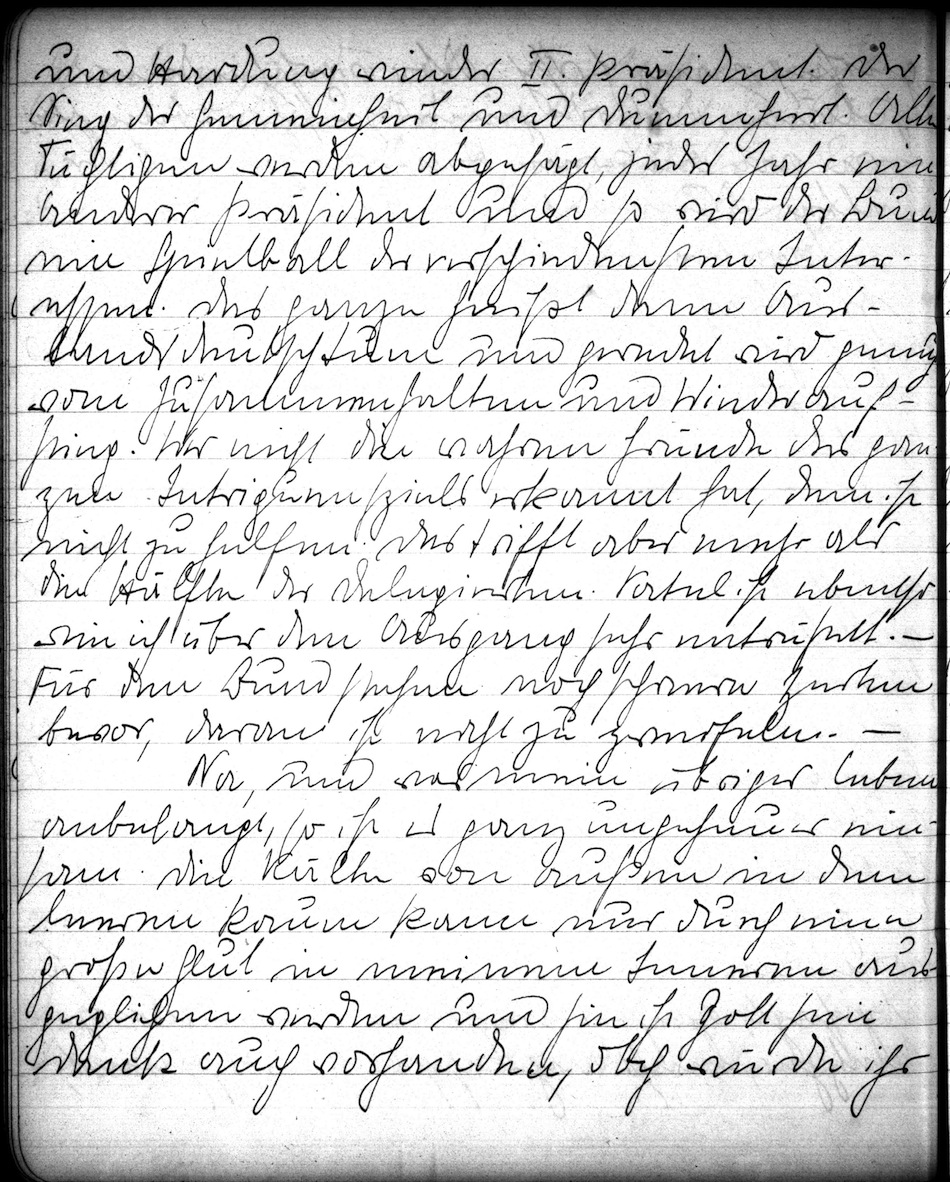 und Hardung wieder II. Präsident. Der
Sieg der Gemeinheit und Dummheit. Alle
Tüchtigen werden abgesägt, jedes Jahr ein
anderer Präsident und so wird der Bund
ein Spielball der verschiedensten Inter-
essen. Das ganze heißt dann Aus-
landsdeutschtum und geredet wird genug
vom Zusammenhalten und Wiederauf-
stieg. Wer nicht die wahren Gründe des gan-
zen Intriguenspiels erkannt hat, dem ist
nicht zu helfen. Das trifft aber mehr als
die Hälfte der Delegierten. ist ebenso
wie ich über den Ausgang sehr entrüstet. —
Für den Bund stehen noch schwere Zeiten
bevor, daran ist nicht zu zweifeln. —
Na, und was mein übriges Leben
anbelangt, so ist es ganz ungeheuer ein-
sam. Die Kälte von außen in dem
leeren Raum kann nur durch eine
große Glut in meinem Inneren aus-
geglichen werden und sie ist Gott sei
dank auch vorhanden, doch würde ihr